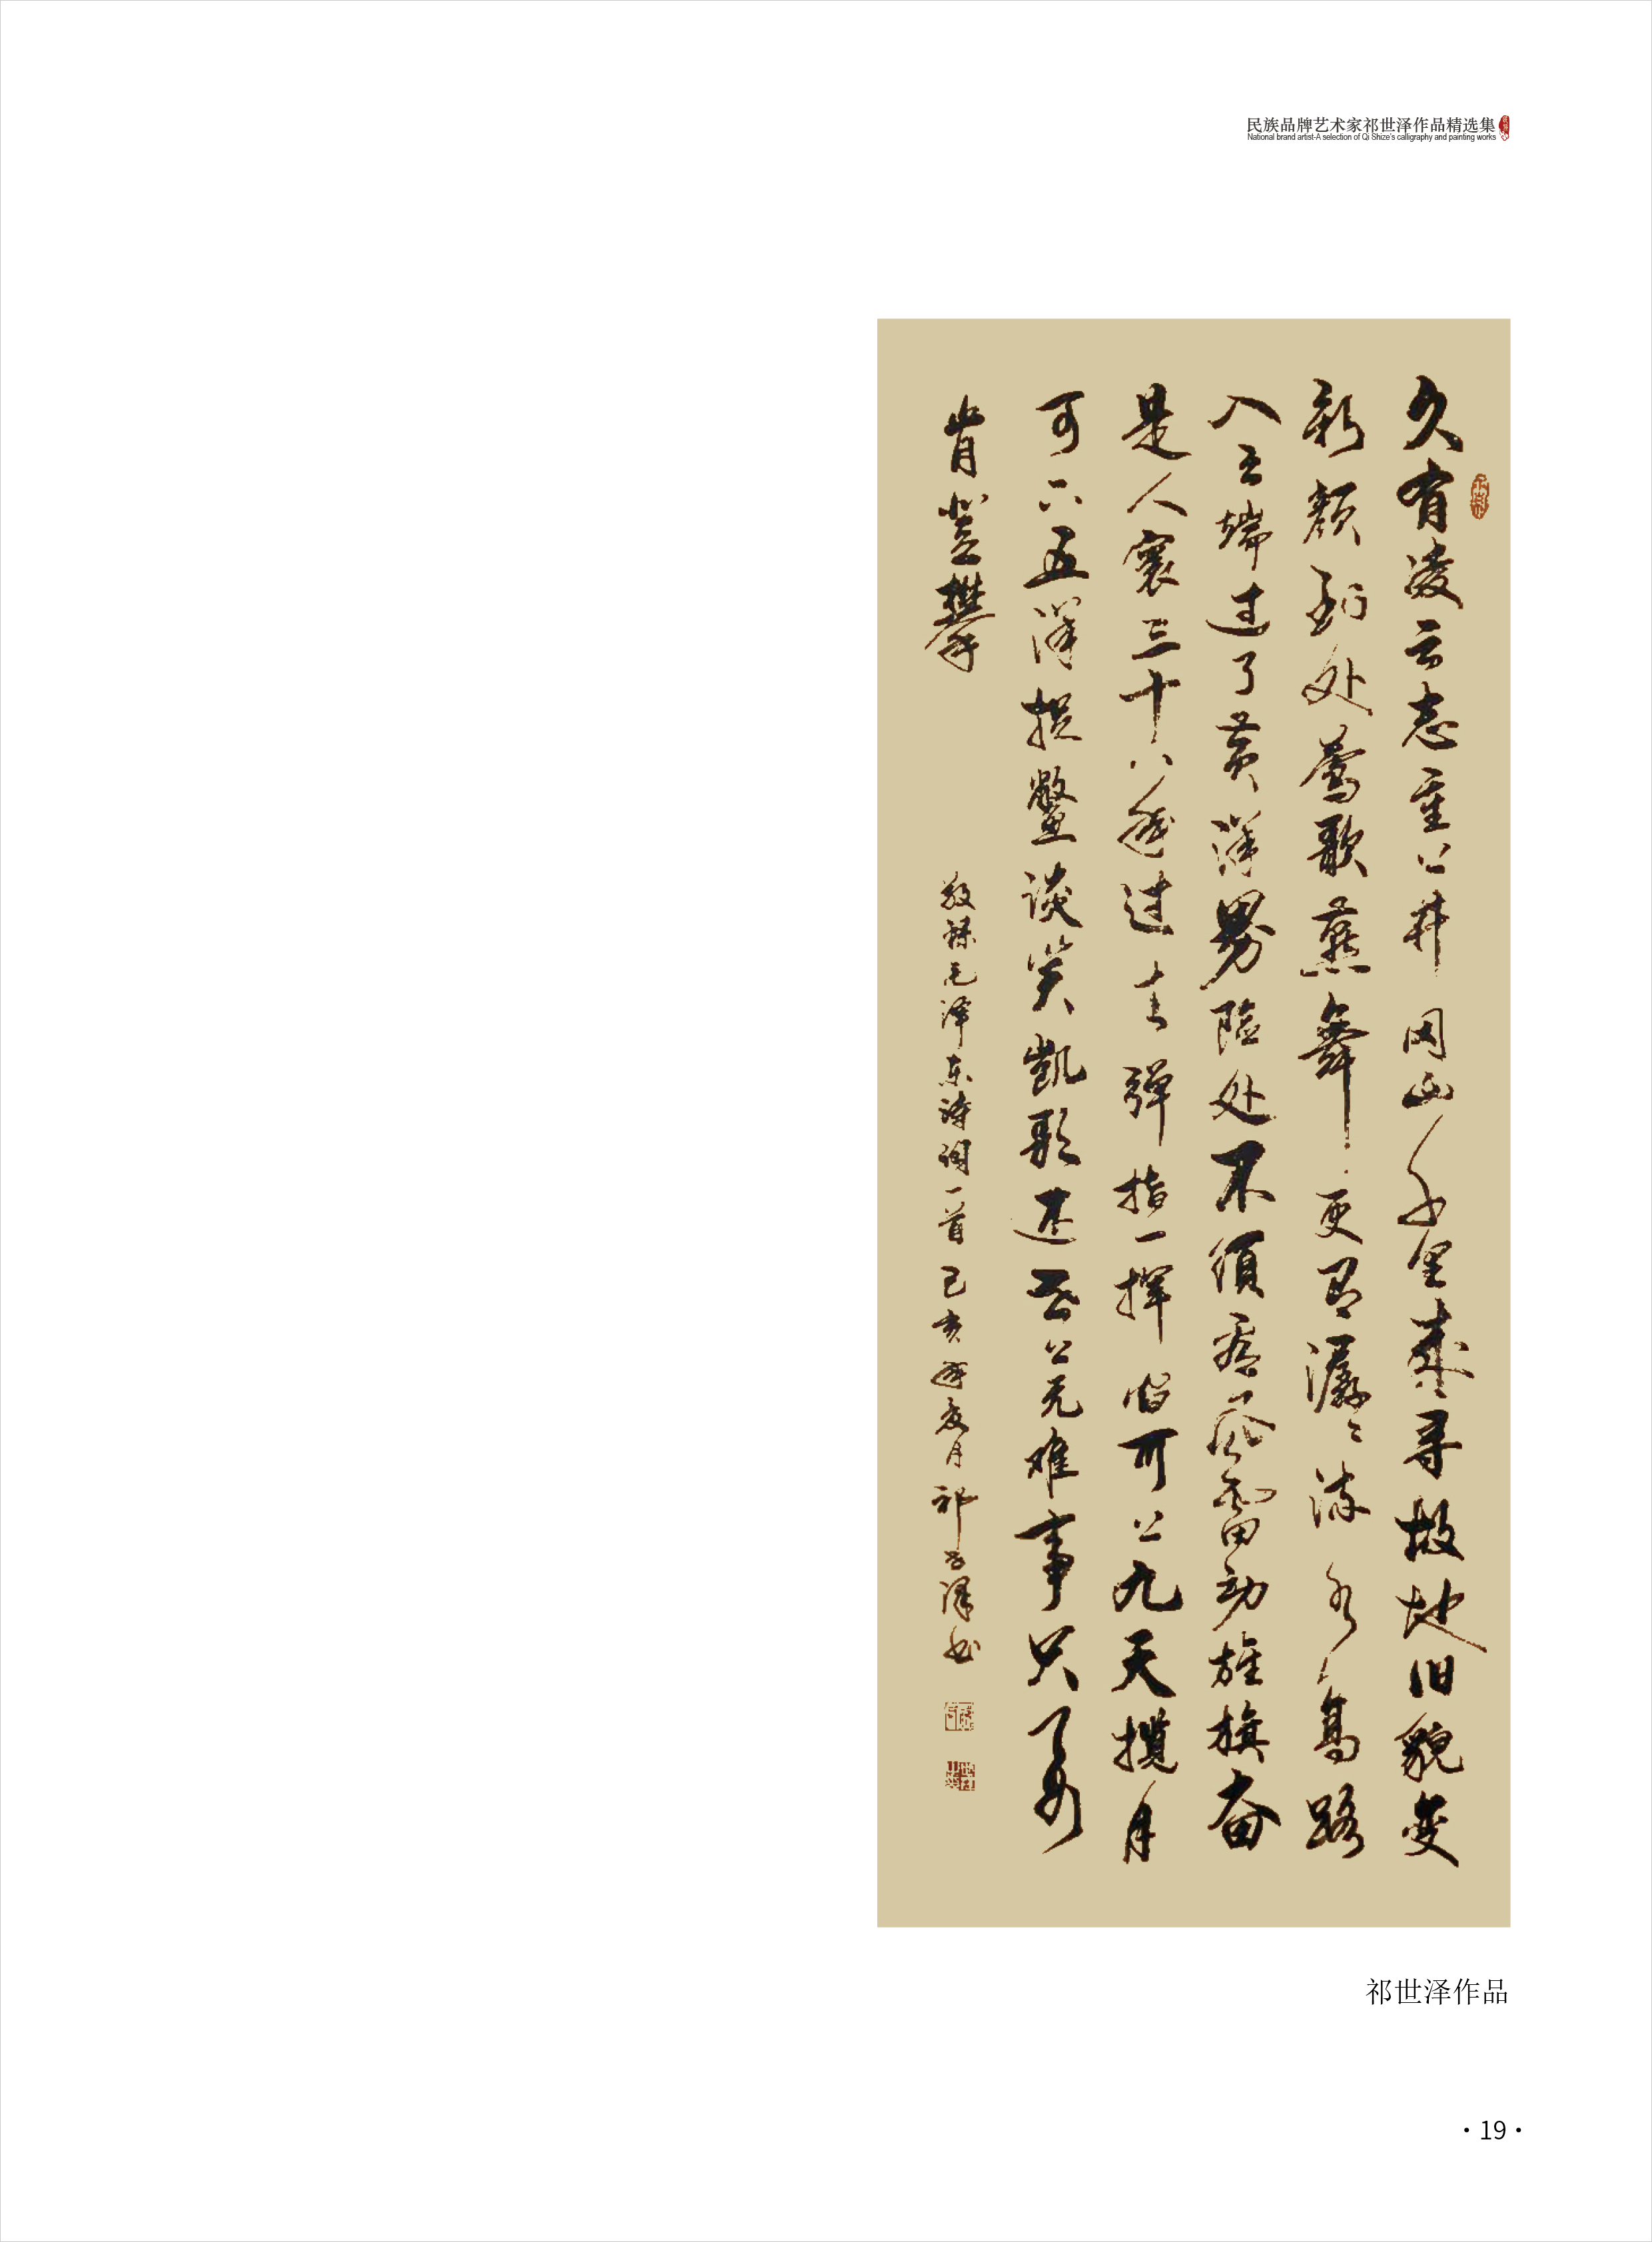 民族品牌艺术家祁世泽作品精选集
National brand artist-A selection of Qi Shize's calligraphy and painting works
久有凌云志重上井冈山千里来寻故地旧貌变
新颜到处莺歌燕舞更有潺々流水高路
入云端过了黄洋界险处不须看风雷动旌旗奋
是人寰三十八年过去弹指一挥间可上九天揽月
可下五洋捉鳖谈笑凯歌还世上无难事只要
肯登攀
敬录毛泽东诗词一首己亥年夏月祁世泽书
祁世泽作品
·19·